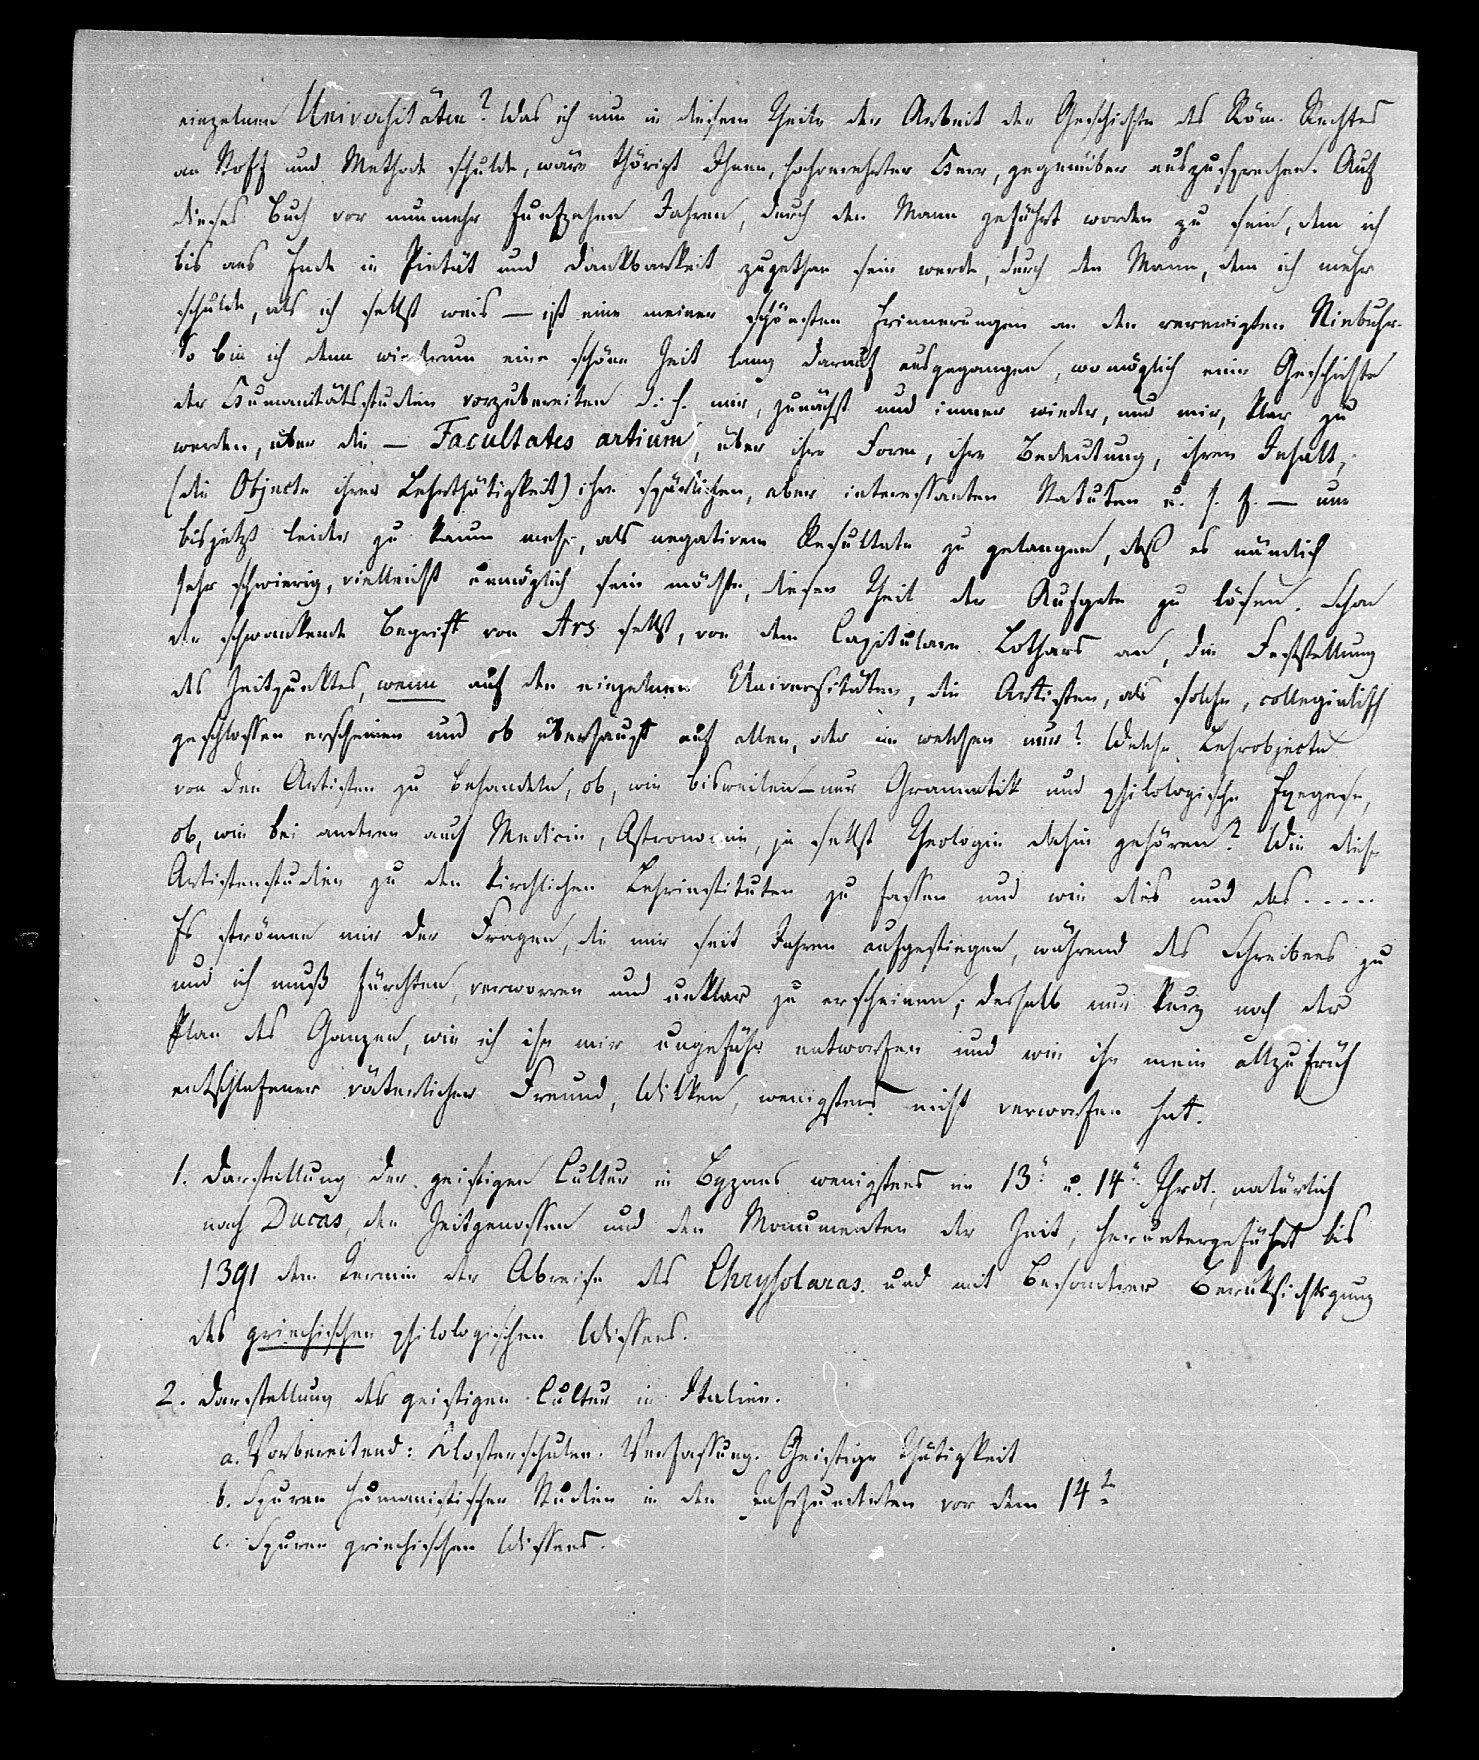 einzelnen Universitäten? Was ich nun in diesem Theile der Arbeit der Geschichte des Röm. Rechtes
an Stoff und Methode schulde, wäre thörigt Ihnen, hochverehrter Herr, gegenüber auszusprechen. Auf
dieses Buch vor nunmehr funfzehen Jahren, durch den Mann geführt worden zu sein, dem ich
bis ans Ende in Pietät und Dankbarkeit zugethan sein werde, durch den Mann, dem ich mehr
schulde, als ich selbst weis — ist eine meiner schönsten Erinnerungen an den verewigten Niebuhr.
So bin ich denn wiederum eine schöne Zeit lang darauf ausgegangen, womöglich eine Geschichte
der Humanitätsstudien vorzubereiten d. h. mir, zunächst und immer wieder, nur mir, klar zu
werden, über die — Facultates artium, über ihre Form, ihre Bedeutung, ihren Inhalt,
(die Objecte ihrer Lehrthätigkeit) ihre spärlichen, aber interessanten Statuten u. s. f. — um
bis jetzt leider zu kaum mehr, als negativem Resultate zu gelangen, daß es nämlich
sehr schwierig, vielleicht unmöglich sein möchte, diesen Theil der Aufgabe zu lösen. Schon
der schwankende Begriff von Ars selbst, von dem Capitulare Lothars an, die Feststellung
des Zeitpunktes, wenn auf den einzelnen Universitäten, die Artisten, als solche, collegialisch
geschlossen erscheinen und ob überhaupt auf allen, oder in welchen nur? Welche Lehrobjecte
von den Artisten zu behandeln, ob, wie bisweilen – nur Grammatik und philologische Exegese,
ob, wie bei andren auch Medicin, Astronomie, ja selbst Theologie dahin gehören? Wie diese
Artistenstudien zu den kirchlichen Lehrinstituten zu fassen und wie dies und das . . . . .
Es strömen mir der Fragen, die mir seit Jahren aufgestiegen, während des Schreibens zu
und ich muß fürchten, verworren und unklar zu erscheinen; deshalb nur kurz noch der
Plan des Ganzen, wie ich ihn mir ungefähr entworfen und wie ihn mein allzufrüh
entschlafener väterlicher Freund, Wilken, wenigstens nicht verworfen hat.
1. Darstellung der geistigen Cultur in Byzanz wenigstens im 13n u. 14n Jhrdt., natürlich
nach Ducas, den Zeitgenossen und den Monumenten der Zeit, heruntergeführt bis
1391 dem Termin der Abreise des Chrysolaras und mit besonderer Berüksichtigung
des griechischen philologischen Wissens.
2. Darstellung der geistigen Cultur in Italien.
a. Vorbereitend: Klosterschulen. Verfassung. Geistige Thätigkeit
b. Spuren humanistischer Studien in den Jahrhunderten vor dem 14n
c. Spuren griechischen Wissens.